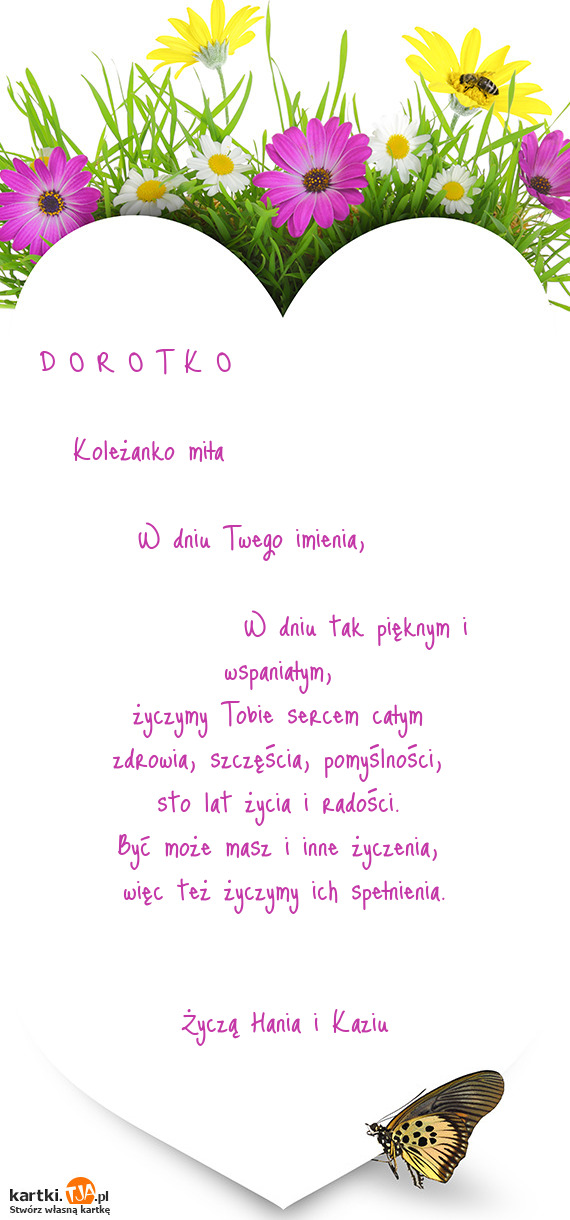 D O R O T K O
Koleżanko miła
W dniu Twego imienia,
W dniu tak pięknym i
wspaniałym,
życzymy Tobie sercem całym
zdrowia, szczęścia, pomyślności,
sto lat życia i radości.
Być może masz i inne życzenia,
więc też życzymy ich spełnienia.
Życzą Hania i Kaziu
kartki.TJA.pl
Stwórz własną kartkę